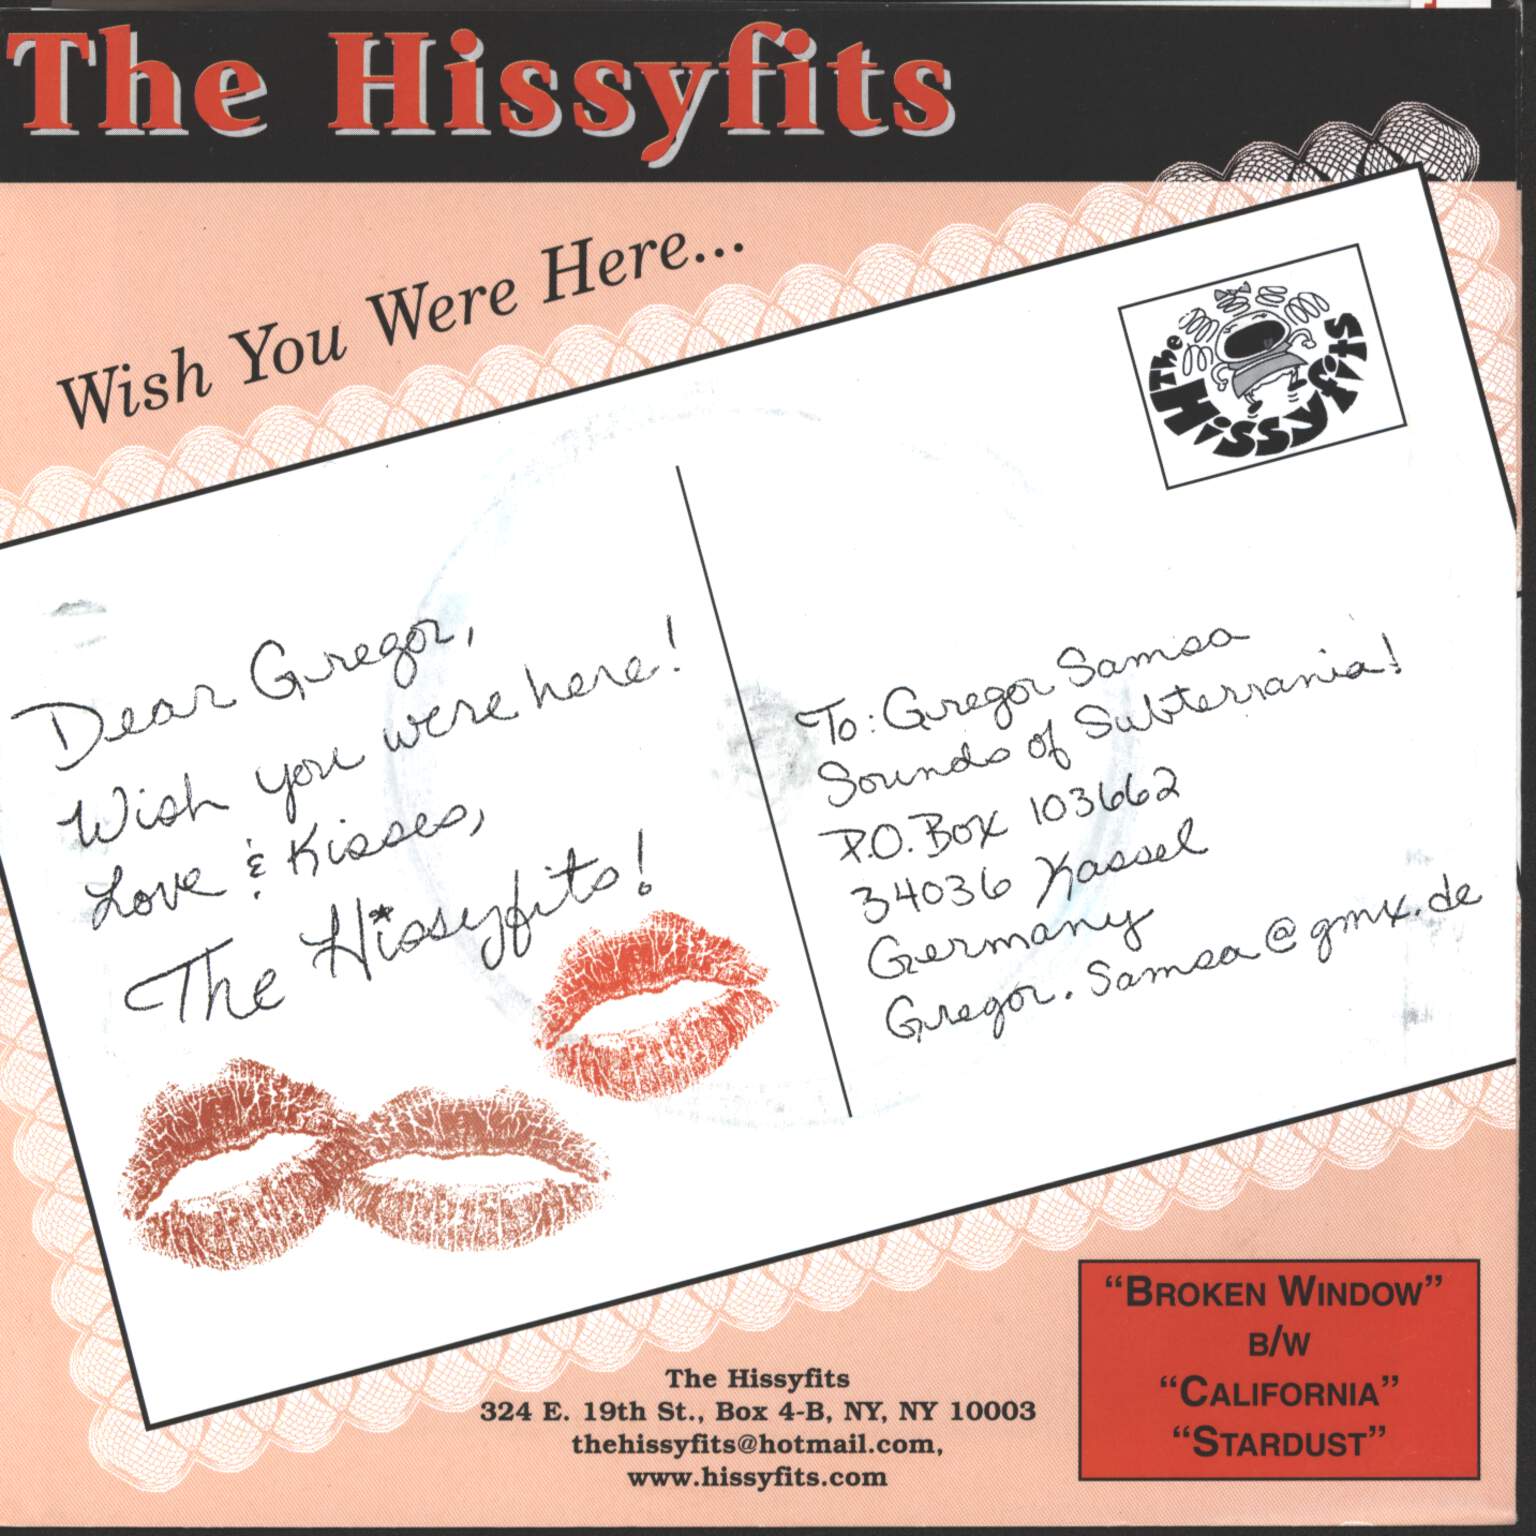 The Hissyfits
Wish You Were Here...
The Hissyfits
Dear Gregor,
Wish you were here!
Love & Kisses,
The Hissyfits!
To: Gregor Samsa
Sounds of Subterrania!
P.O. Box 103662
34036 Kassel
Germany
Gregor.Samsa@gmx.de
The Hissyfits
324 E. 19th St., Box 4-B, NY, NY 10003
thehissyfits@hotmail.com,
www.hissyfits.com
“BROKEN WINDOW”
B/W
“CALIFORNIA”
“STARDUST”